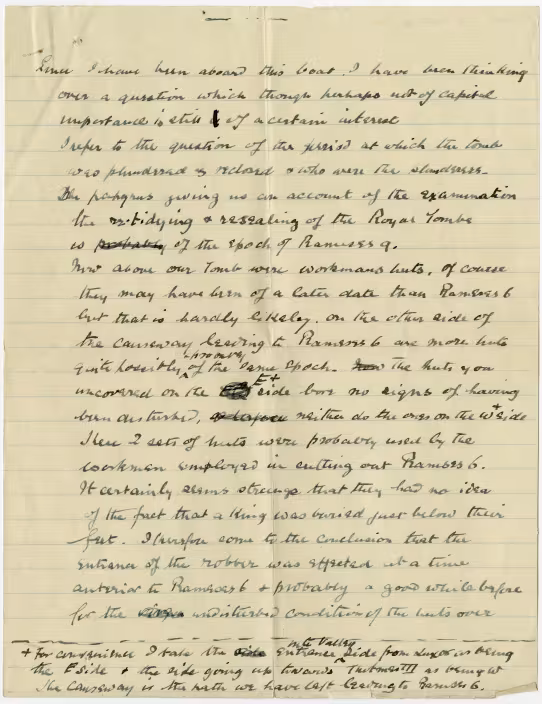 Since I have been aboard this boat I have been thinking
over a question which though perhaps not of capital
importance is still of a certain interest
I refer to the question of the period at which the tomb
was plundered & reclosed & who were the plunderers.
The papyrus giving us an account of the examination
the retidying & resealing of the Royal Tombs
is probably of the Epoch of Rameses 9.
Now above our Tomb were workmans huts, of course
they may have been of a later date than Ramses 6
but that is hardly likely. on the other side of
the causeway leading to Ramses 6 are more huts
quite possibly of the same epoch. Now the huts you
uncovered on the E+ side bore no signs of having
been disturbed, neither do the ones on the W+ side
These 2 sets of huts were probably used by the
workmen employed in cutting out Ramses 6.
It certainly seems strange that they had no idea
of the fact that a King was buried just below their
feet. I therefore come to the conclusion that the
entrance of the robber was effected at a time
anterior to Ramses 6 & probably a good while before
for the undisturbed condition of the huts over
+ For convenience I take the side entrance into Valley side from Luxor as being
the E side & the side going up towards Thotmes III as being W
The Causeway is the path we have left leading to Ramses 6.